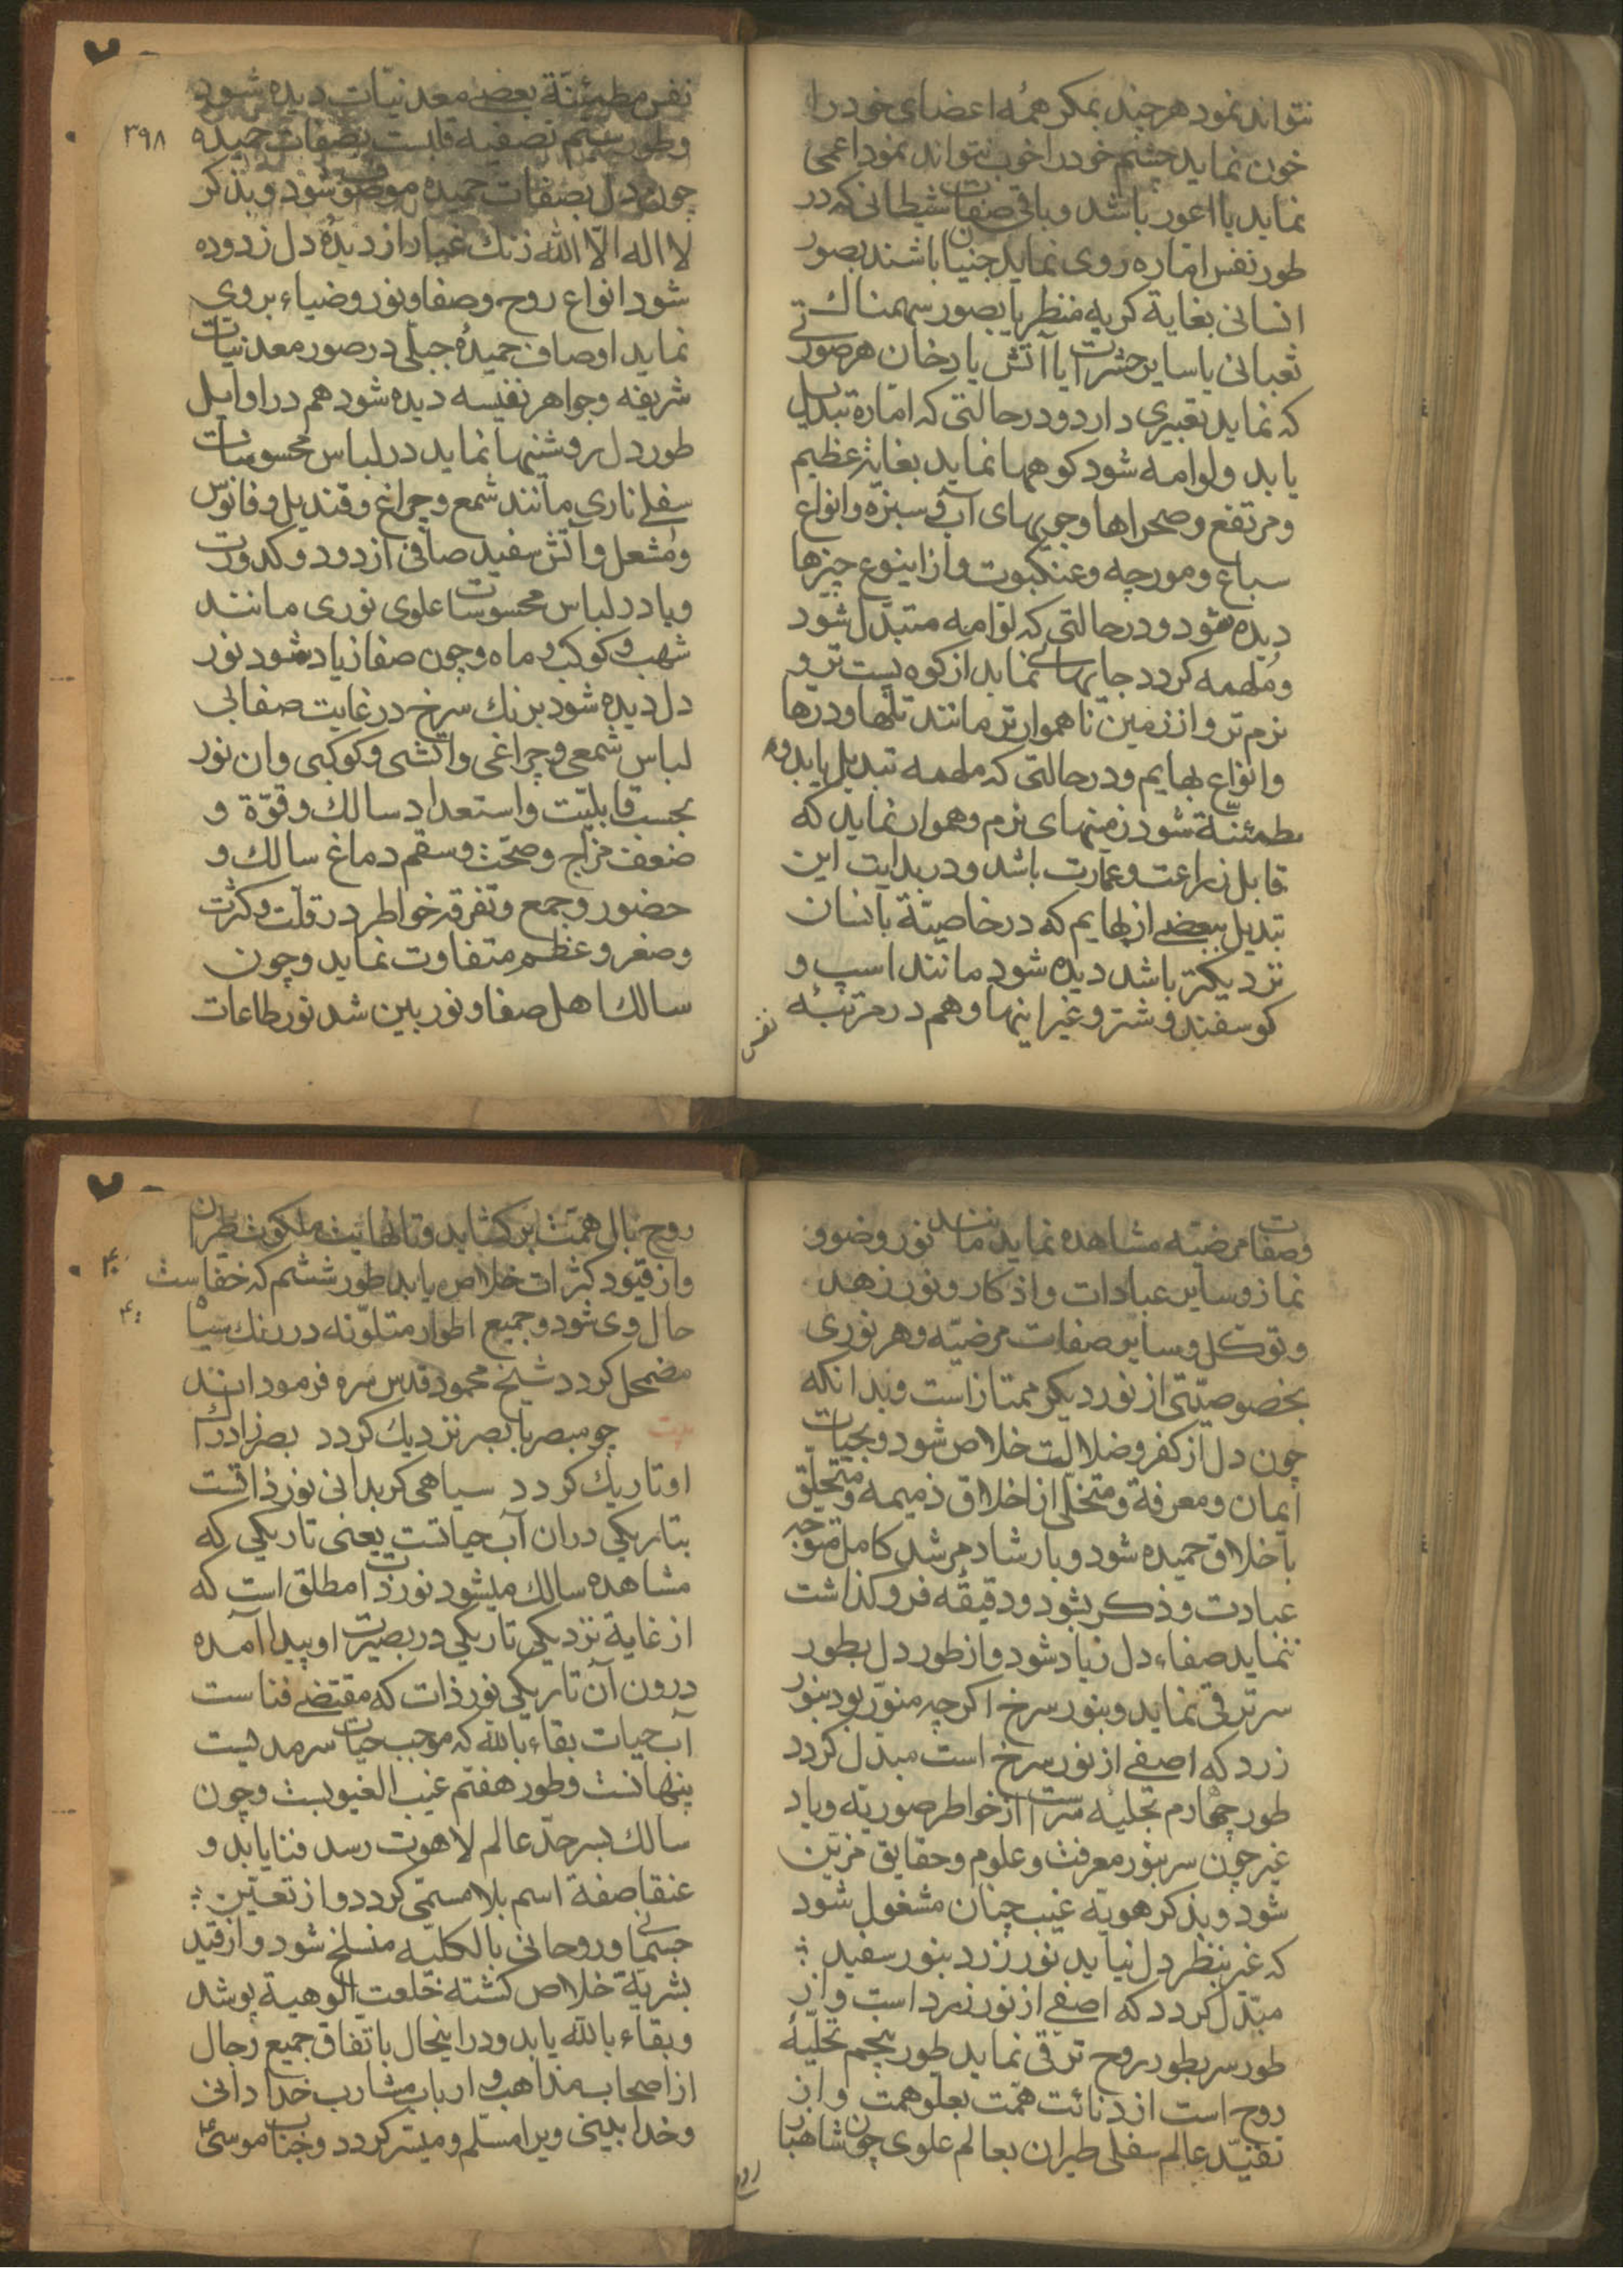 نتواند نمود هر چند بمکر همه اعضای خود را
خون نماید چشم خود را خوب نتواند نمود اعمی
نماید یا اعور باشد و باقی صفات شیطانی که در
طور نفس اماره روی نماید جنیان باشند بصور
انسانی بغایة کریه منظر یا بصور سهمناك
ثعبانی یا سایر حشرات یا آتش یا دخان هر صورتے
که نماید تعبیری دارد و در حالتی که امّاره تبدیل
یابد و لوامه شود کوهها نماید بغایة عظیم
و مرتفع و صحراها و جویهای آب و سبزه و انواع
سباع و مورچه و عنکبوت و از اینوع چیزها
دیده شود و در حالتی که لوّامه متبدّل شود
و مُلهمه کردد جایهائے نماید از کوه پست تر و
نرم تر و از زمین ناهموارتر مانند تلها و درها
و انواع بهایم و در حالتی که ملهمه تبدیل یابد و م
طمئنّة شود زمینهای نرم و هموار نماید که
قابل زراعت و عمارت باشد و در بدایت این
تبدیل ببعضے از بهایم که در خاصیّة بانسان
نزدیکتر باشد دیده شود مانند اسپ و
کوسفند و شتر و غیر اینها و هم در مرتبهٔ
نفس
نفس مطمئنّة بعضے معدنیّات دیده شود
۳۹۸
و طور سیّم تصفیه قلبست بصفات حمیده
چون دل بصفات حمیده موصوف شود و بذکر
لا اله الّا الله زنك غبار از دیدهٔ دل زدوده
شود انواع روح و صفا و نور و ضیاء بروی
نماید اوصاف حمیدهٔ جبلّی در صور معدنیات
شریفه و جواهر نفیسه دیده شود هم در اوایل
طور دل روشنیها نماید در لباس محسوسات
سفلے ناری مانند شمع و چراغ و قندیل و فانوس
و مشعل و آتش سفید صافی از دود و کدورت
و یا در لباس محسوسات علوی نوری مانند
شهب و کوکب و ماه و چون صفا زیاد شود نور
دل دیده شود برنك سرخ در غایت صفا بی
لباس شمعی و چراغی و آتشی و کوکبی و ان نور
بحسب قابلیّت و استعداد سالك و قوّة و
ضعف مزاج و صحّت و سقم دماغ سالك و
حضور و جمع و تفرقه خواطر در قلّت و کثرت
و صغر و عظم متفاوت نماید و چون
سالك اهل صفا و نور بین شد نور طاعات
و صفات مرضیّه مشاهده نماید مانند نور وضو و
نماز و سایر عبادات و اذکار و نور زهد
و توکّل و سایر صفات مرضیّه و هر نوری
بخصوصیّتی از نور دیکر ممتاز است و بدانکه
چون دل از کفر و ضلالت خلاص شود و بحیات
ایمان و معرفة و متخلّی از اخلاق ذمیمه و متخلّق
باخلاق حمیده شود و بارشاد مرشد کامل متوجّه
عبادت و ذکر بشود و دقیقهٔ فرو کذاشت
ننماید صفاء دل زیاد شود و از طور دل بطور
سر ترقی نماید و بنور سرخ اکرچه منوّر بود بنور
زرد که اصفے از نور سرخ است مبدّل کردد
طور چهارم تخلیهٔ سرّست از خواطر صوریّه و یاد
غیر چون سر بنور معرفت و علوم و حقایق مزیّن
شود و بذکر هویّه غیب چنان مشغول شود
که غیر بنظر دل نیاید نور زرد بنور سفید
مبدّل کردد که اصفے از نور زرد است و از
طور سر بطور روح ترقی نماید طور پنجم تخلیهٔ
روح است از دنائت همّت بعلو همت و از
تقیّد عالم سفلی طیران بعالم علوی چون شاهباز
روح
روح بال همّت بر کشاید و تا نهایت ملکوت طیران
۴۰۰
و از قیود کثرات خلاص یابد طور ششم که خفاست
حال وی شود و جمیع اطوار متلوّنه در رنك سیاه
مضمحل کردد شیخ محمود قدس سره فرموداند
بیت چو مبصر با بصر نزدیك کردد بصر ز ادراك
او تاریك کردد سیاهی کر بدانی نور ذاتست
بتاریکی دران آب حیاتست یعنی تاریکی که
مشاهده سالك میشود نور ذات مطلق است که
از غایة نزدیکی تاریکی در بصیرت او پیدا آمده
درون آن تاریکی نور ذات که مقتضے فناست
آب حیات بقاء بالله که موجب حیات سرمدیست
پنهانست و طور هفتم غیب الغیوبست و چون
سالك بسرحدّ عالم لاهوت رسد فنا یابد و
عنقا صفة اسم بلا مسمّی کردد و از تعیّن
جسمانے و روحانی بالکلیّه منسلخ شود و از قید
بشریّة خلاص کشته خلعت الوهیة پوشد
و بقاء بالله یابد و در اینحال باتفاق جمیع رجال
از اصحاب مذاهب و ارباب مشارب خدادانی
و خدا بینی ویرا مسلّم و میسّر کردد و جناب موسیٰ ع